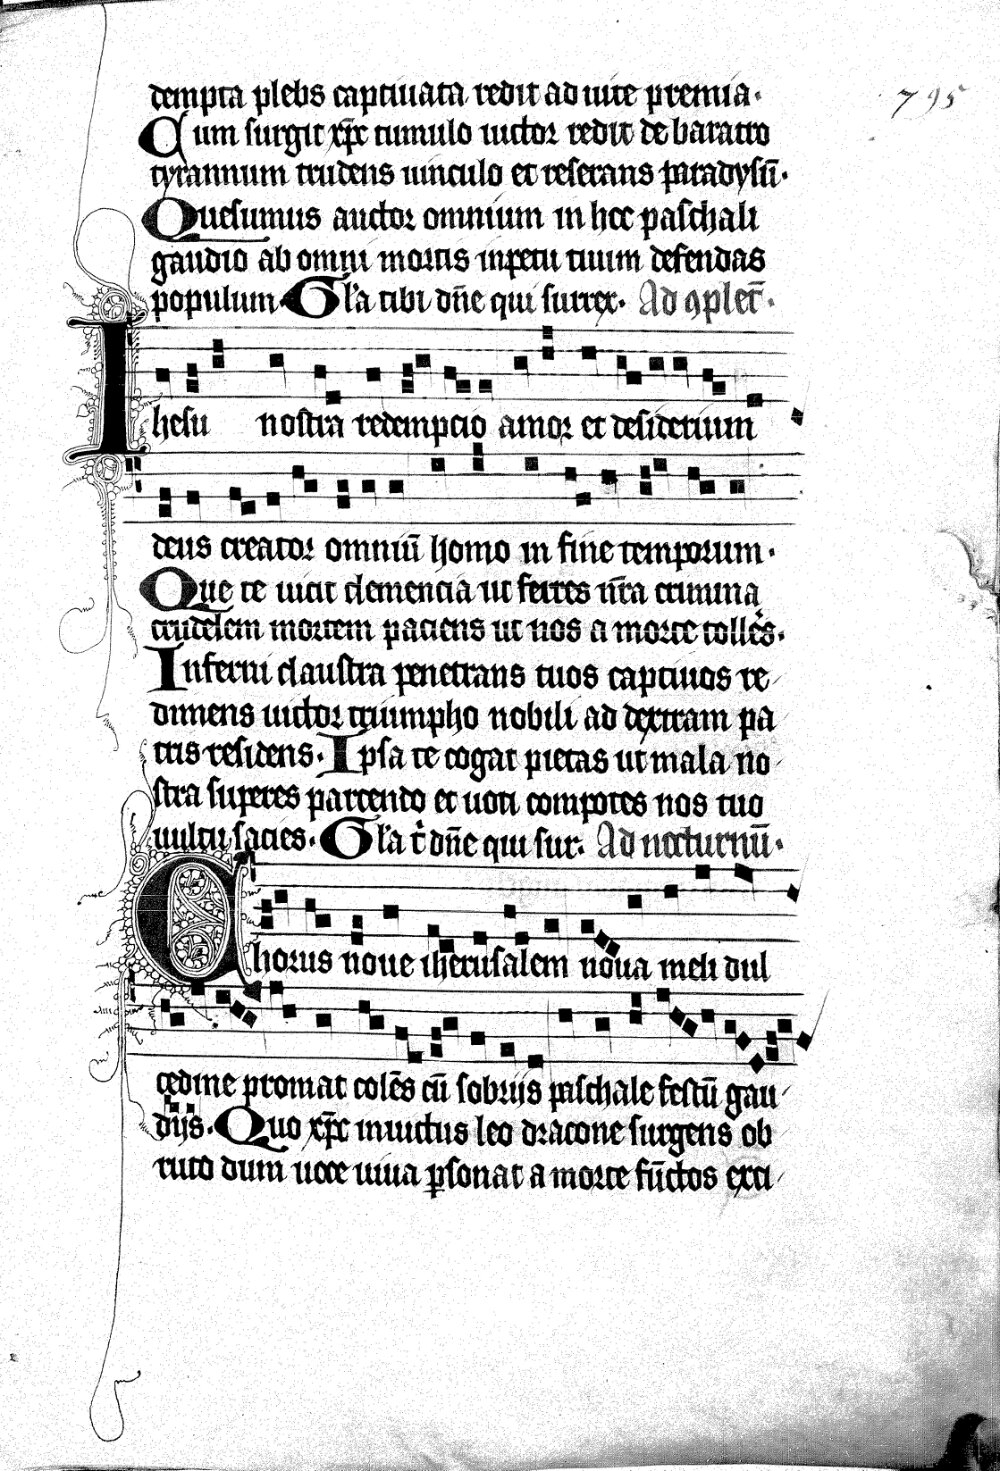 dempta plebs captiuata redit ad uite premia.
795
Cum surgit xp̄c tumulo uictor redit de baratro
tyrannum trudens uinculo et reserans paradysū.
Quesumus auctor omnium in hoc paschali
gaudio ab omni mortis inpetu tuum defendas
populum. Gl'a tibi dn̄e qui surrex. Ad 9plet̄.
Ihesu nostra redempcio amor et desiderium
deus creator omniū homo in fine temporum.
Que te uicit clemencia ut ferres nr̄a crimina
crudelem mortem paciens ut nos a morte tolleȓs.
Inferni claustra penetrans tuos captiuos re
dimens uictor triumpho nobili ad dextram pa
tris residens. Ipsa te cogat pietas ut mala no
stra superes parcendo et uoti compotes nos tuo
uultu sacies. Gl'a t̄ dn̄e qui sur. Ad nocturnū.
Chorus noue iherusalem noua meli dul
cedine promat colēs cū sobriis paschale festū gau
diis. Quo xp̄c inuictus leo dracone surgens ob
ruto dum uoce uiua ꝑsonat a morte fūctos exci